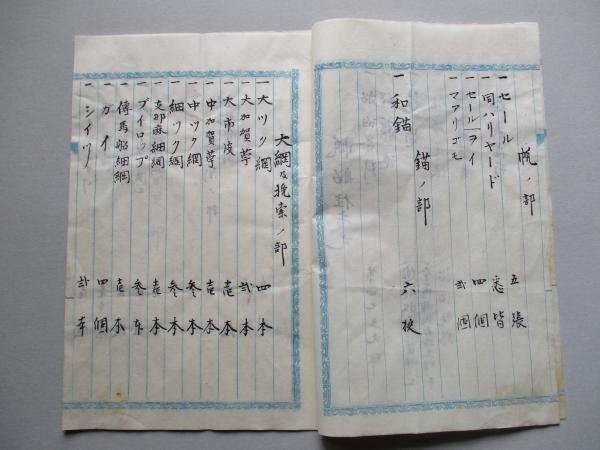 帆ノ部
一セール 五張
一同ハリヤード 悉皆
一セールヲイ 四個
一マアリゴモ 弐個
錨ノ部
一和錨 六挺
大綱及挽索ノ部
一大ツク綱 四本
一大加賀苧 弐本
一大市皮 壱本
一中加賀苧 壱本
一中ツク綱 参本
一細ツク綱 参本
一支那麻細綱 壱本
一ブイロップ 参本
一傳馬船細綱 壱本
一ガイ 四個
一シイツ 弐本